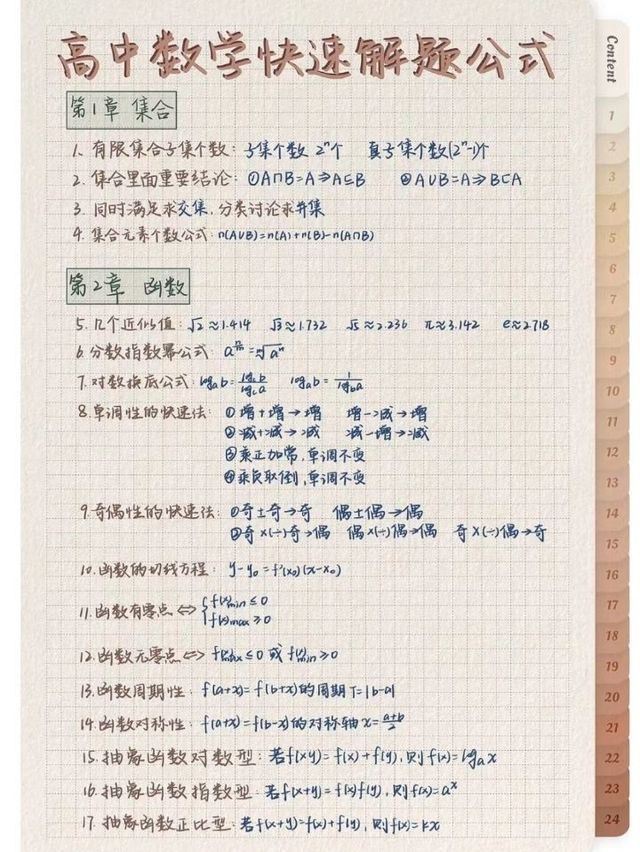 高中数学快速解题公式
第1章 集合
1. 有限集合子集个数：子集个数 2ⁿ个 真子集个数(2ⁿ-1)个
2. 集合里面重要结论：①A∩B=A⇒A⊆B ②A∪B=A⇒B⊆A
3. 同时满足求交集，分类讨论求并集
4. 集合元素个数公式：n(A∪B)=n(A)+n(B)-n(A∩B)
第2章 函数
5. 几个近似值：√2≈1.414 √3≈1.732 √5≈2.236 π≈3.142 e≈2.718
6. 分数指数幂公式：
7. 对数换底公式：logₐb=log꜀b/log꜀a logₐb=1/log_b a
8. 单调性的快速法：①增+增→增 增-减→增
②减+减→减 减-增→减
③乘正加常，单调不变
④乘负取倒，单调不变
9. 奇偶性的快速法：①奇±奇→奇 偶±偶→偶
②奇×(÷)奇→偶 偶×(÷)偶→偶 奇×(÷)偶→奇
10. 函数的切线方程：y-y₀=f'(x₀)(x-x₀)
11. 函数有零点⇔{f(x)min≤0
f(x)max≥0
12. 函数无零点⇔f(x)max≤0 或 f(x)min≥0
13. 函数周期性：f(a+x)=f(b+x)的周期T=|b-a|
14. 函数对称性：f(a+x)=f(b-x)的对称轴x=(a+b)/2
15. 抽象函数对数型：若f(xy)=f(x)+f(y)，则f(x)=logₐx
16. 抽象函数指数型：若f(x+y)=f(x)f(y)，则f(x)=aˣ
17. 抽象函数正比型：若f(x+y)=f(x)+f(y)，则f(x)=kx
Content
1
2
3
4
5
6
7
8
9
10
11
12
13
14
15
16
17
18
19
20
21
22
23
24